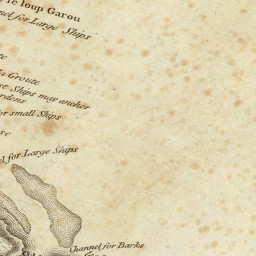 le loup Garou
nel for Large Ships
Groute
Ships may anchor
rdens
for small Ships
ve
l for Large Ships
Channel for Barks